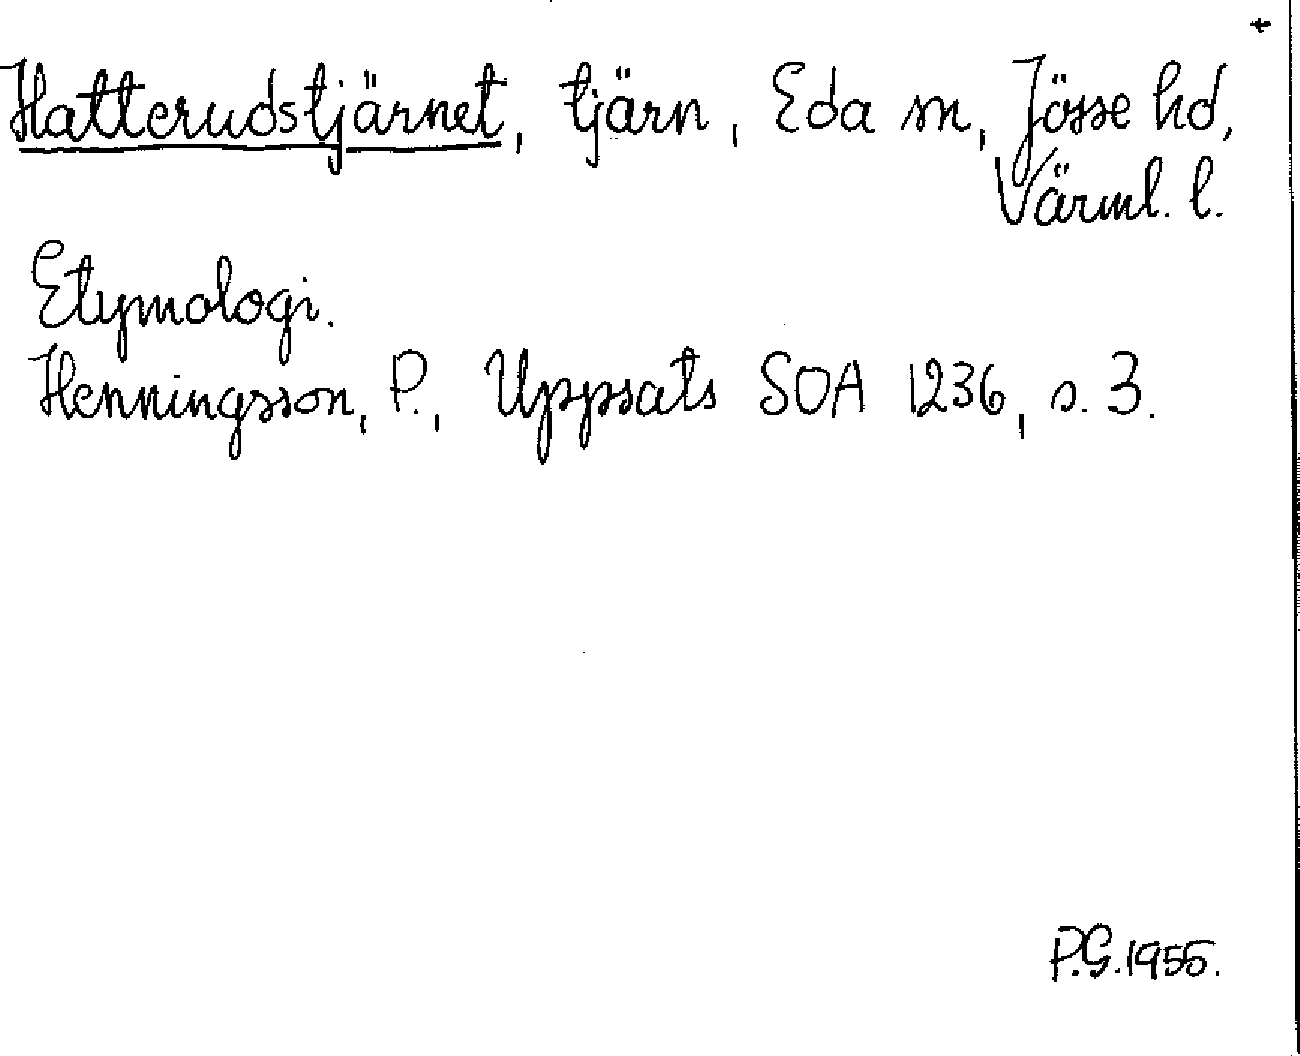 +
Hatterudstjärnet, tjärn, Eda sn, Jösse hd,
Värml. l.
Etymologi.
Henningsson, P., Uppsats SOA 1236, s. 3.
P.G. 1955.